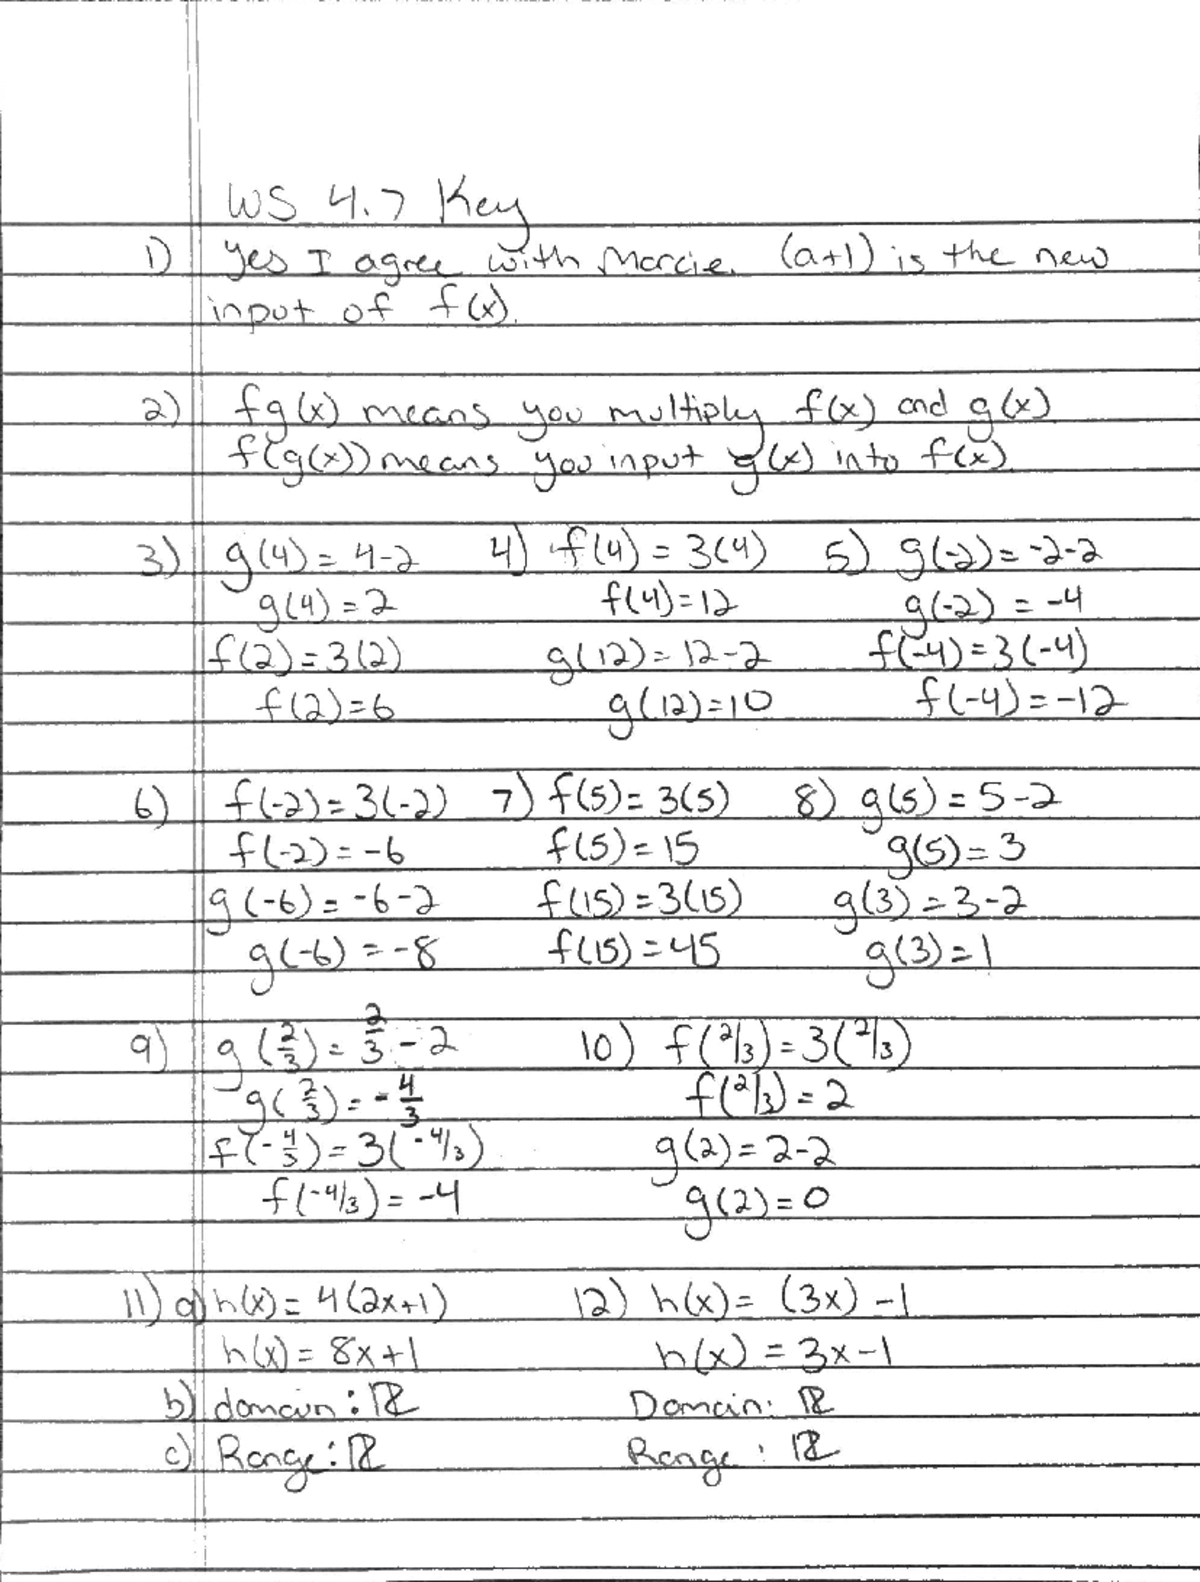 WS 4.7 Key
1) yes I agree with Marcie. (a+1) is the new
input of f(x).
2) fg(x) means you multiply f(x) and g(x)
f(g(x)) means you input g(x) into f(x)
3) g(4) = 4-2 4) f(4) = 3(4) 5) g(-2) = -2-2
g(4) = 2 f(4) = 12 g(-2) = -4
f(2) = 3(2) g(12) = 12-2 f(-4) = 3(-4)
f(2) = 6 g(12) = 10 f(-4) = -12
6) f(-2) = 3(-2) 7) f(5) = 3(5) 8) g(5) = 5-2
f(-2) = -6 f(5) = 15 g(5) = 3
g(-6) = -6-2 f(15) = 3(15) g(3) = 3-2
g(-6) = -8 f(15) = 45 g(3) = 1
9) g(2/3) = 2/3 - 2 10) f(2/3) = 3(2/3)
g(2/3) = -4/3 f(2/3) = 2
f(-4/3) = 3(-4/3) g(2) = 2-2
f(-4/3) = -4 g(2) = 0
11) a) h(x) = 4(2x+1) 12) h(x) = (3x) -1
h(x) = 8x+1 h(x) = 3x-1
b) domain: ℝ Domain: ℝ
c) Range: ℝ Range: ℝ